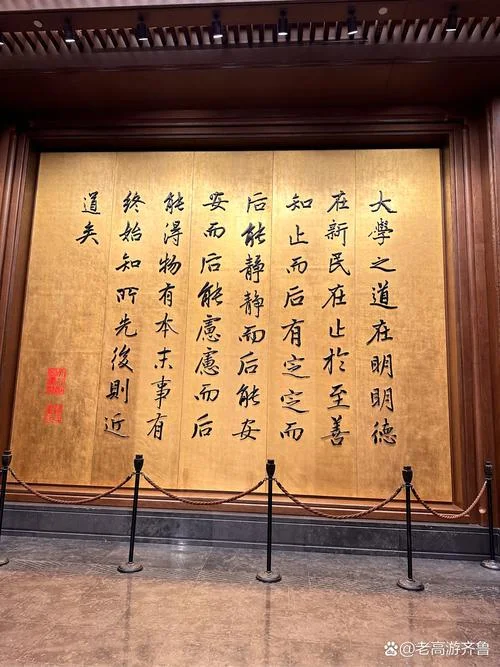 大學之道在明明德
在新民在止於至善
知止而后有定定而
后能靜靜而后能安
安而后能慮慮而后
能得物有本末事有
終始知所先後則近
道矣
老高游齐鲁